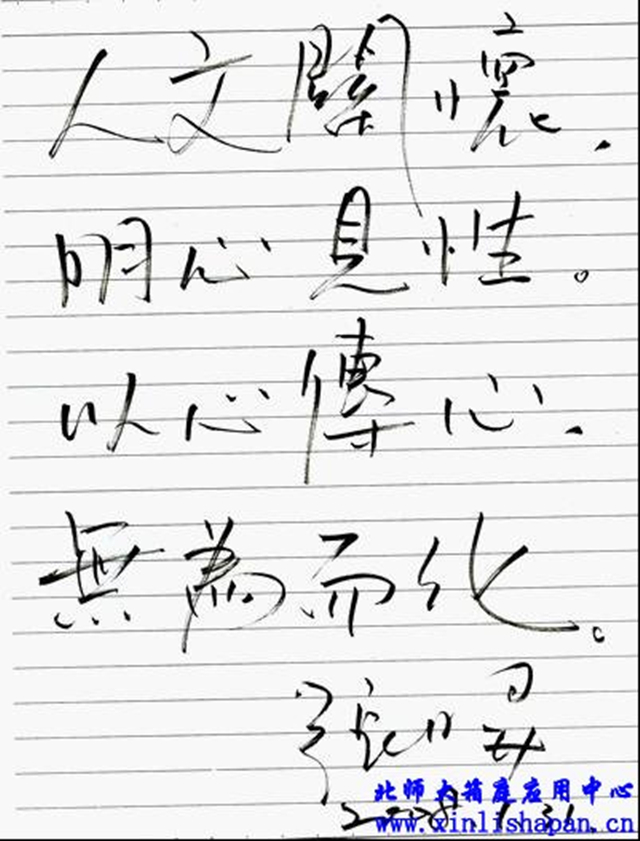 人文關懷，
明心見性。
以心傳心，
無為而化。
張日昇
2008.1.31.
北师大箱庭应用中心
www.xinlishapan.cn